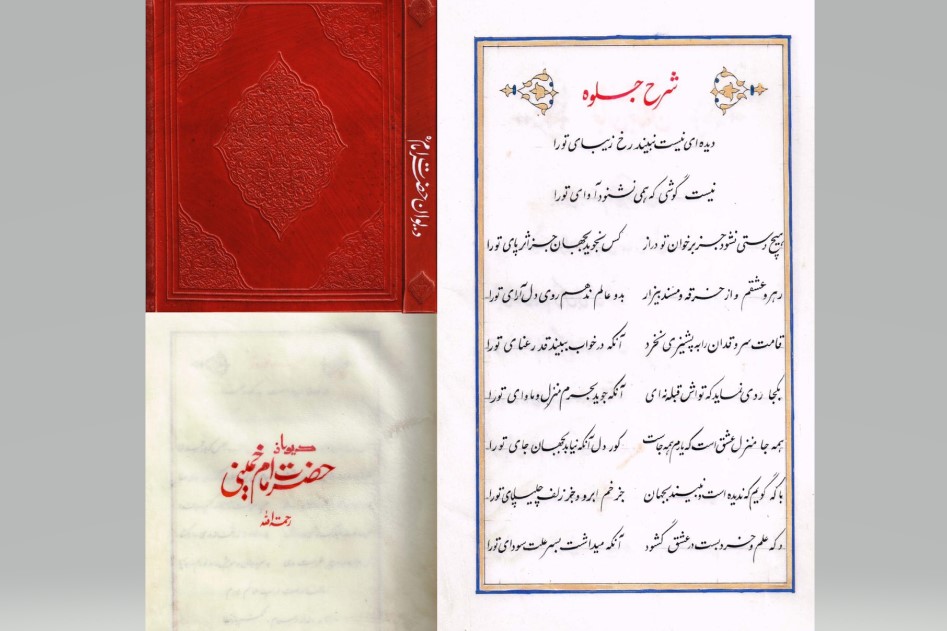 دیوان حضرت امام ره
دیوان
حضرت امام خمینی
رحمة الله
شرح جلوه
دیده ای نیست نبیند رخ زیبای تورا
نیست گوشی که همی نشنود آوای تورا
هیچ دستی نشود جز بر خوان تو دراز کس نجوید بجهان جز اثر پای تورا
رهرو عشقم و از خرقه و مسند بیزار بدو عالم ندهم روی دل آرای تورا
قامت سرو قدان را به پشیزی نخرد آنکه در خواب ببیند قد رعنای تورا
بکجا روی نماید که تواش قبله نه ای آنکه جوید بحرم منزل و ماوای تورا
همه جا منزل عشق است که یارم همه جاست کور دل آنکه نیابد بجهان جای تورا
با که گویم که ندیده است و نبیند بجهان جز خم ابرو و جز زلف چلیپای تورا
دکه علم و خرد بست در عشق گشود آنکه میداشت بسر علت سودای تورا